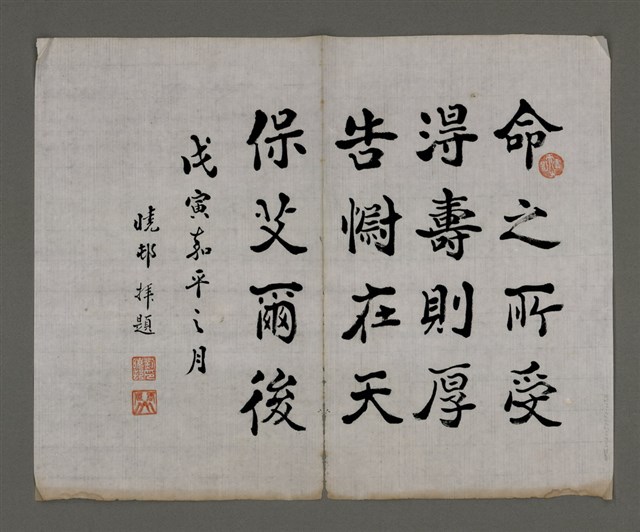 命之所受
淂壽則厚
告慰在天
保艾爾後
戊寅嘉平之月
曉邨拜題